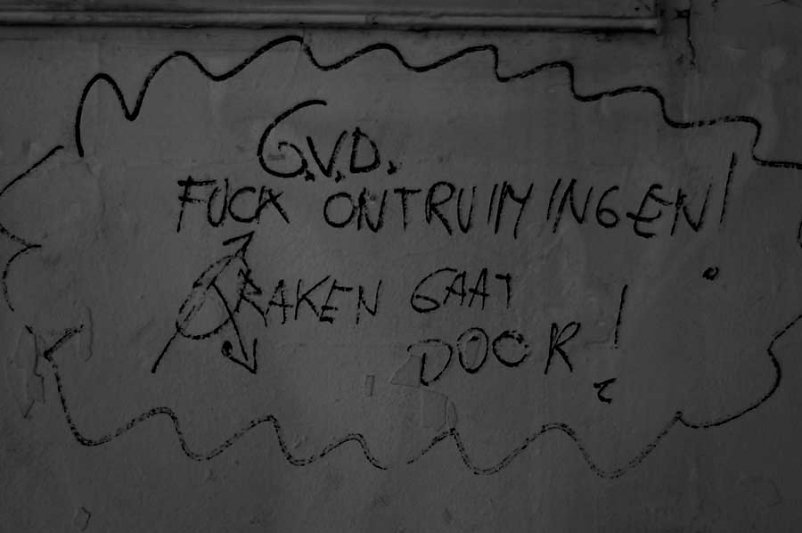 G.V.D.
FUCK ONTRUIMINGEN!
KRAKEN GAAT
DOOR!